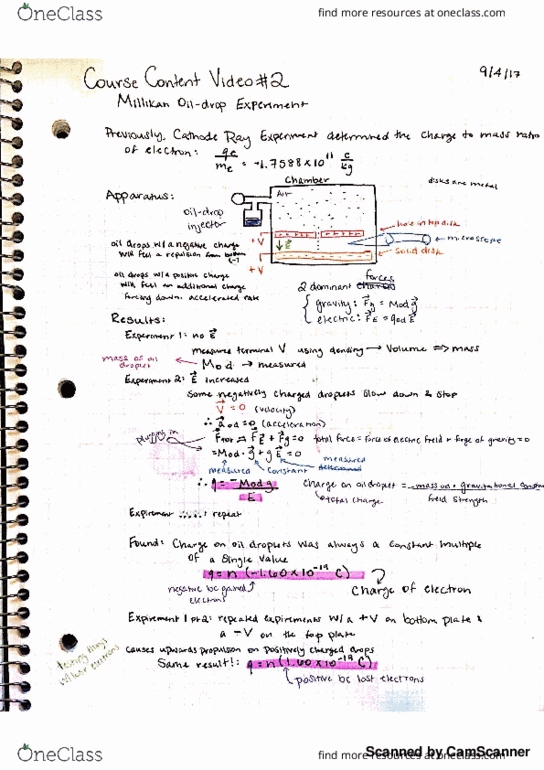 OneClass
find more resources at oneclass.com
Course Content Video #2
9/4/17
Millikan Oil-drop Experiment
Previously, Cathode Ray Experiment determined the charge to mass ratio
of electron: qe/me = -1.7588 x 10^11 C/kg
Chamber
disks are metal
Apparatus:
Air
oil-drop
injector
hole in top disk
microscope
solid disk
-V
E
+V
oil drops w/ a negative charge
will feel a repulsion from bottom
(-)
oil drops w/ positive charge
will feel an additional charge
forcing down: accelerated rate
forces
2 dominant
gravity: Fg = Mod g
electric: FE = qod E
Results:
Experiment 1: no E
measure terminal V using density → Volume => mass
mass of oil
droplet
Mod → measured
Experiment 2: E increased
Some negatively charged droplets slow down & stop
V = 0 (velocity)
∴ aod = 0 (acceleration)
plugging in
Ftot = FE + Fg = 0 total force = force of electric field + force of gravity = 0
= Mod · g + q E = 0
measured
measured constant
∴ q = -Mod g / E
charge on oil droplet = -mass od · gravitational
field strength
total charge
Expirement ......: repeat
Found: Charge on oil droplets was always a constant multiple
of a single value
q = n (-1.60 x 10^-19 C)
negative bc gained
electrons
Charge of electron
Expirement 1 pt 2: repeated expirements w/ a +V on bottom plate &
a -V on the top plate
causes upwards propulsion on positively charged drops
Same result!: q = n (1.60 x 10^-19 C)
positive bc lost electrons
OneClass
find more resources at oneclass.com
Scanned by CamScanner